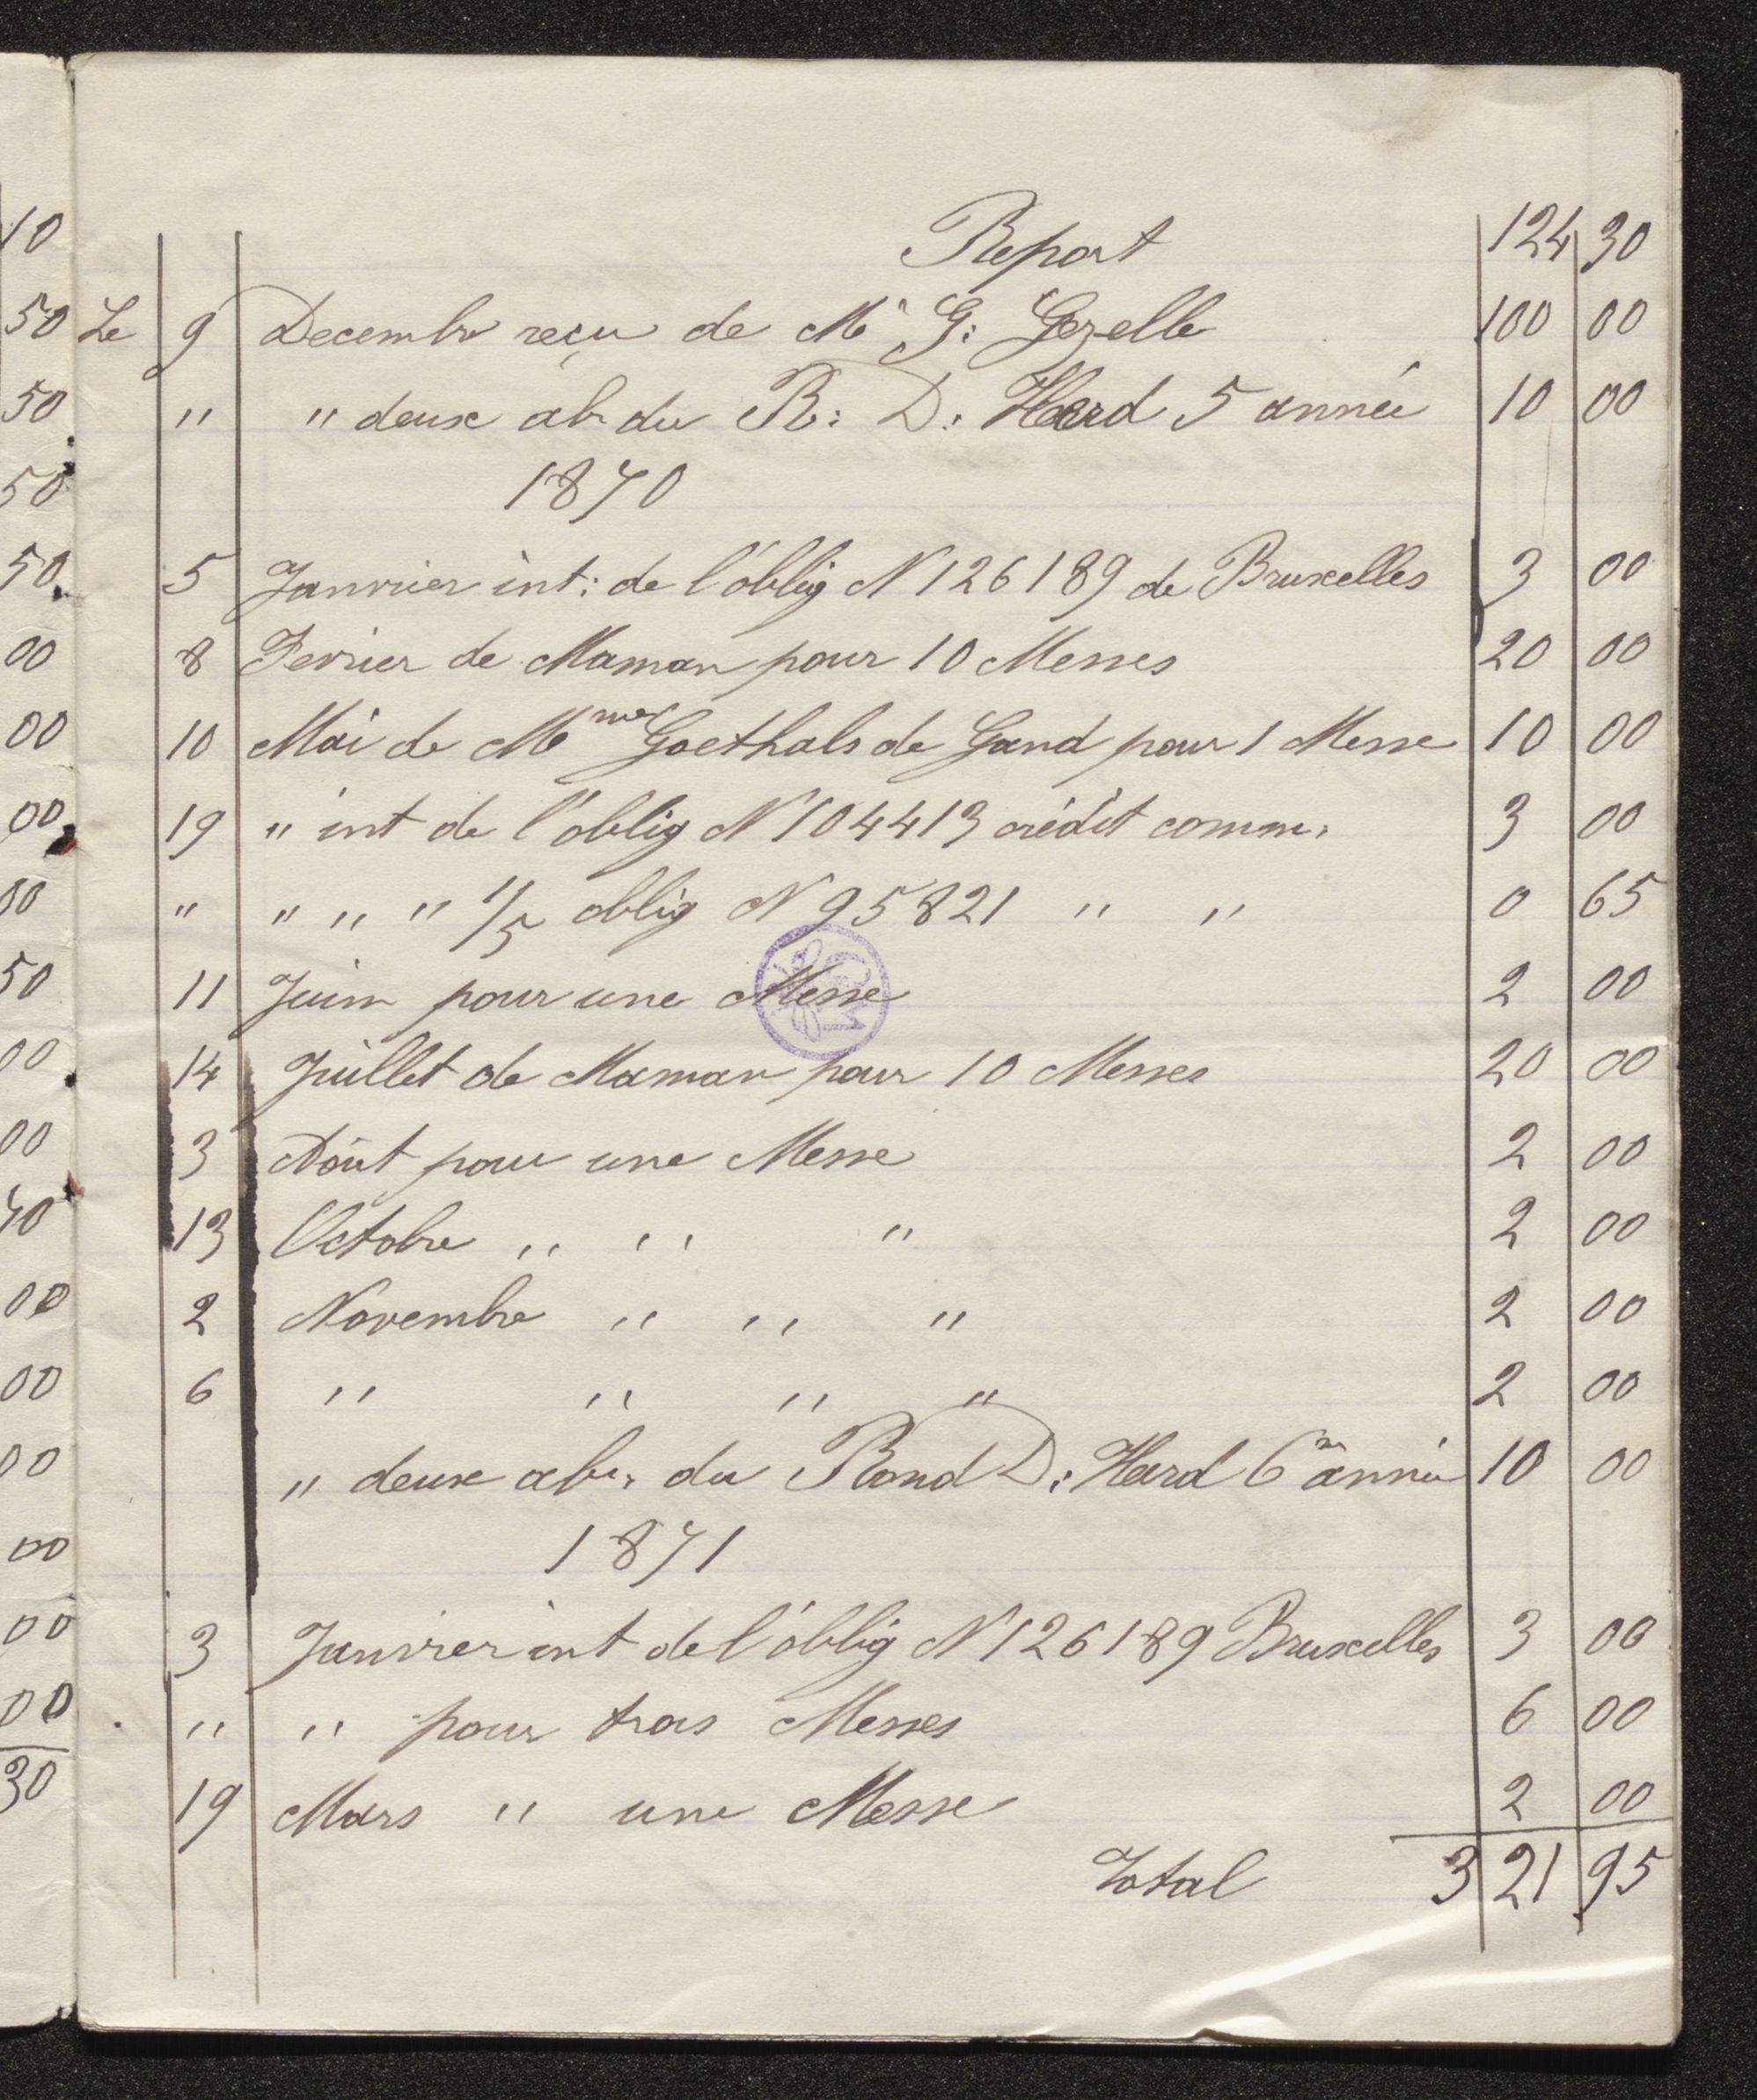 Report 124 30
Le 9 Decembre reçu de Mr G: Gezelle 100 00
" " deux ab du R: D: Heard 5 année 10 00
1870
5 Janvrier int: de l'oblig N 126189 de Bruxelles 3 00
8 Fevrier de Maman pour 10 Messes 20 00
10 Mai de Mme Goethals de Gand pour 1 Messe 10 00
19 " int de l'oblig N 104413 crédit comm. 3 00
" " " " 1/5 oblig N 95821 " " 0 65
11 Juin pour une Messe 2 00
14 Juillet de Maman pour 10 Messes 20 00
3 Aôut pour une Messe 2 00
13 Octobre " " " 2 00
2 Novembre " " " 2 00
6 " " " " 2 00
" deux abr. du Rond D: Heard 6m année 10 00
1871
3 Janvrier int de l'oblig N 126189 Bruxelles 3 00
" " pour trois Messes 6 00
19 Mars " une Messe 2 00
Total 321 95